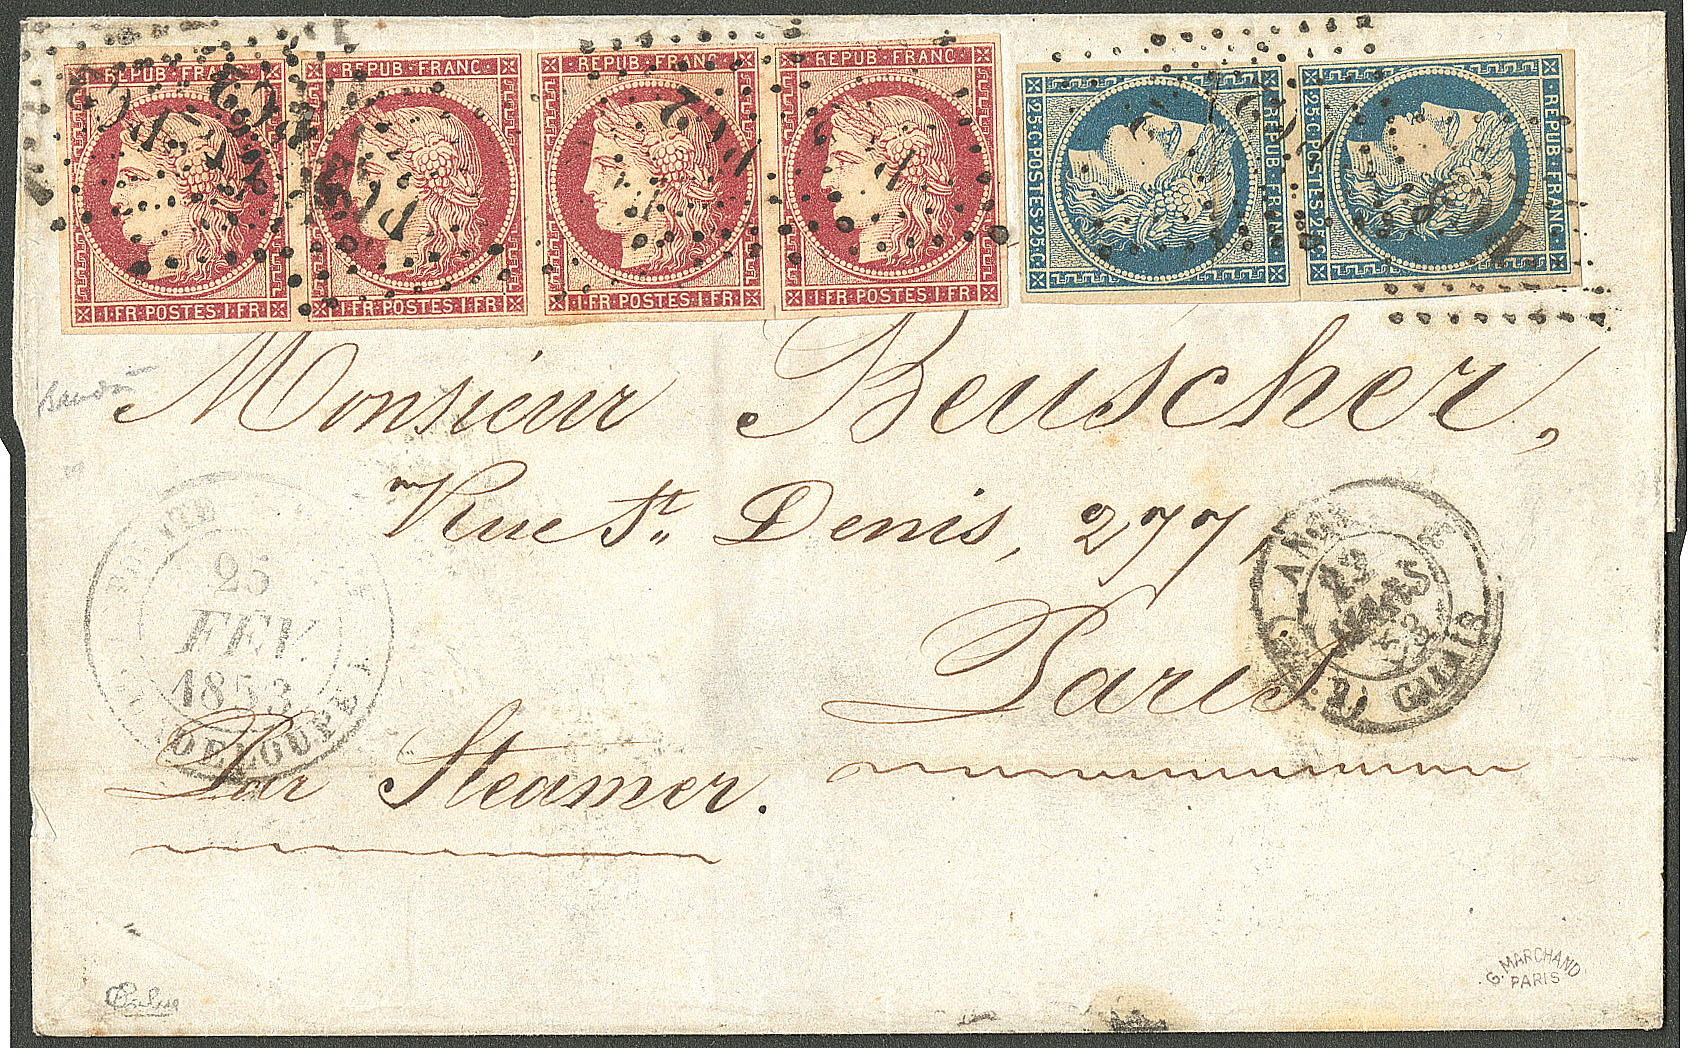 REPUB·FRANC·
REPUB·FRANC·
REPUB·FRANC·
REPUB·FRANC·
·1·FR·POSTES·1·FR·
·1·FR·POSTES·1·FR·
·1·FR·POSTES·1·FR·
·1·FR·POSTES·1·FR·
25·C·POSTES·25·C
·REPUB·FRANC·
25·C·POSTES·25·C
·REPUB·FRANC·
Monsieur Beuscher,
Rue St. Denis, 277,
Paris
Par Steamer.
25
FEV.
1853
GUADELOUPE
ANGL.
22
MARS
53
2) CALAIS
G. MARCHAND
PARIS